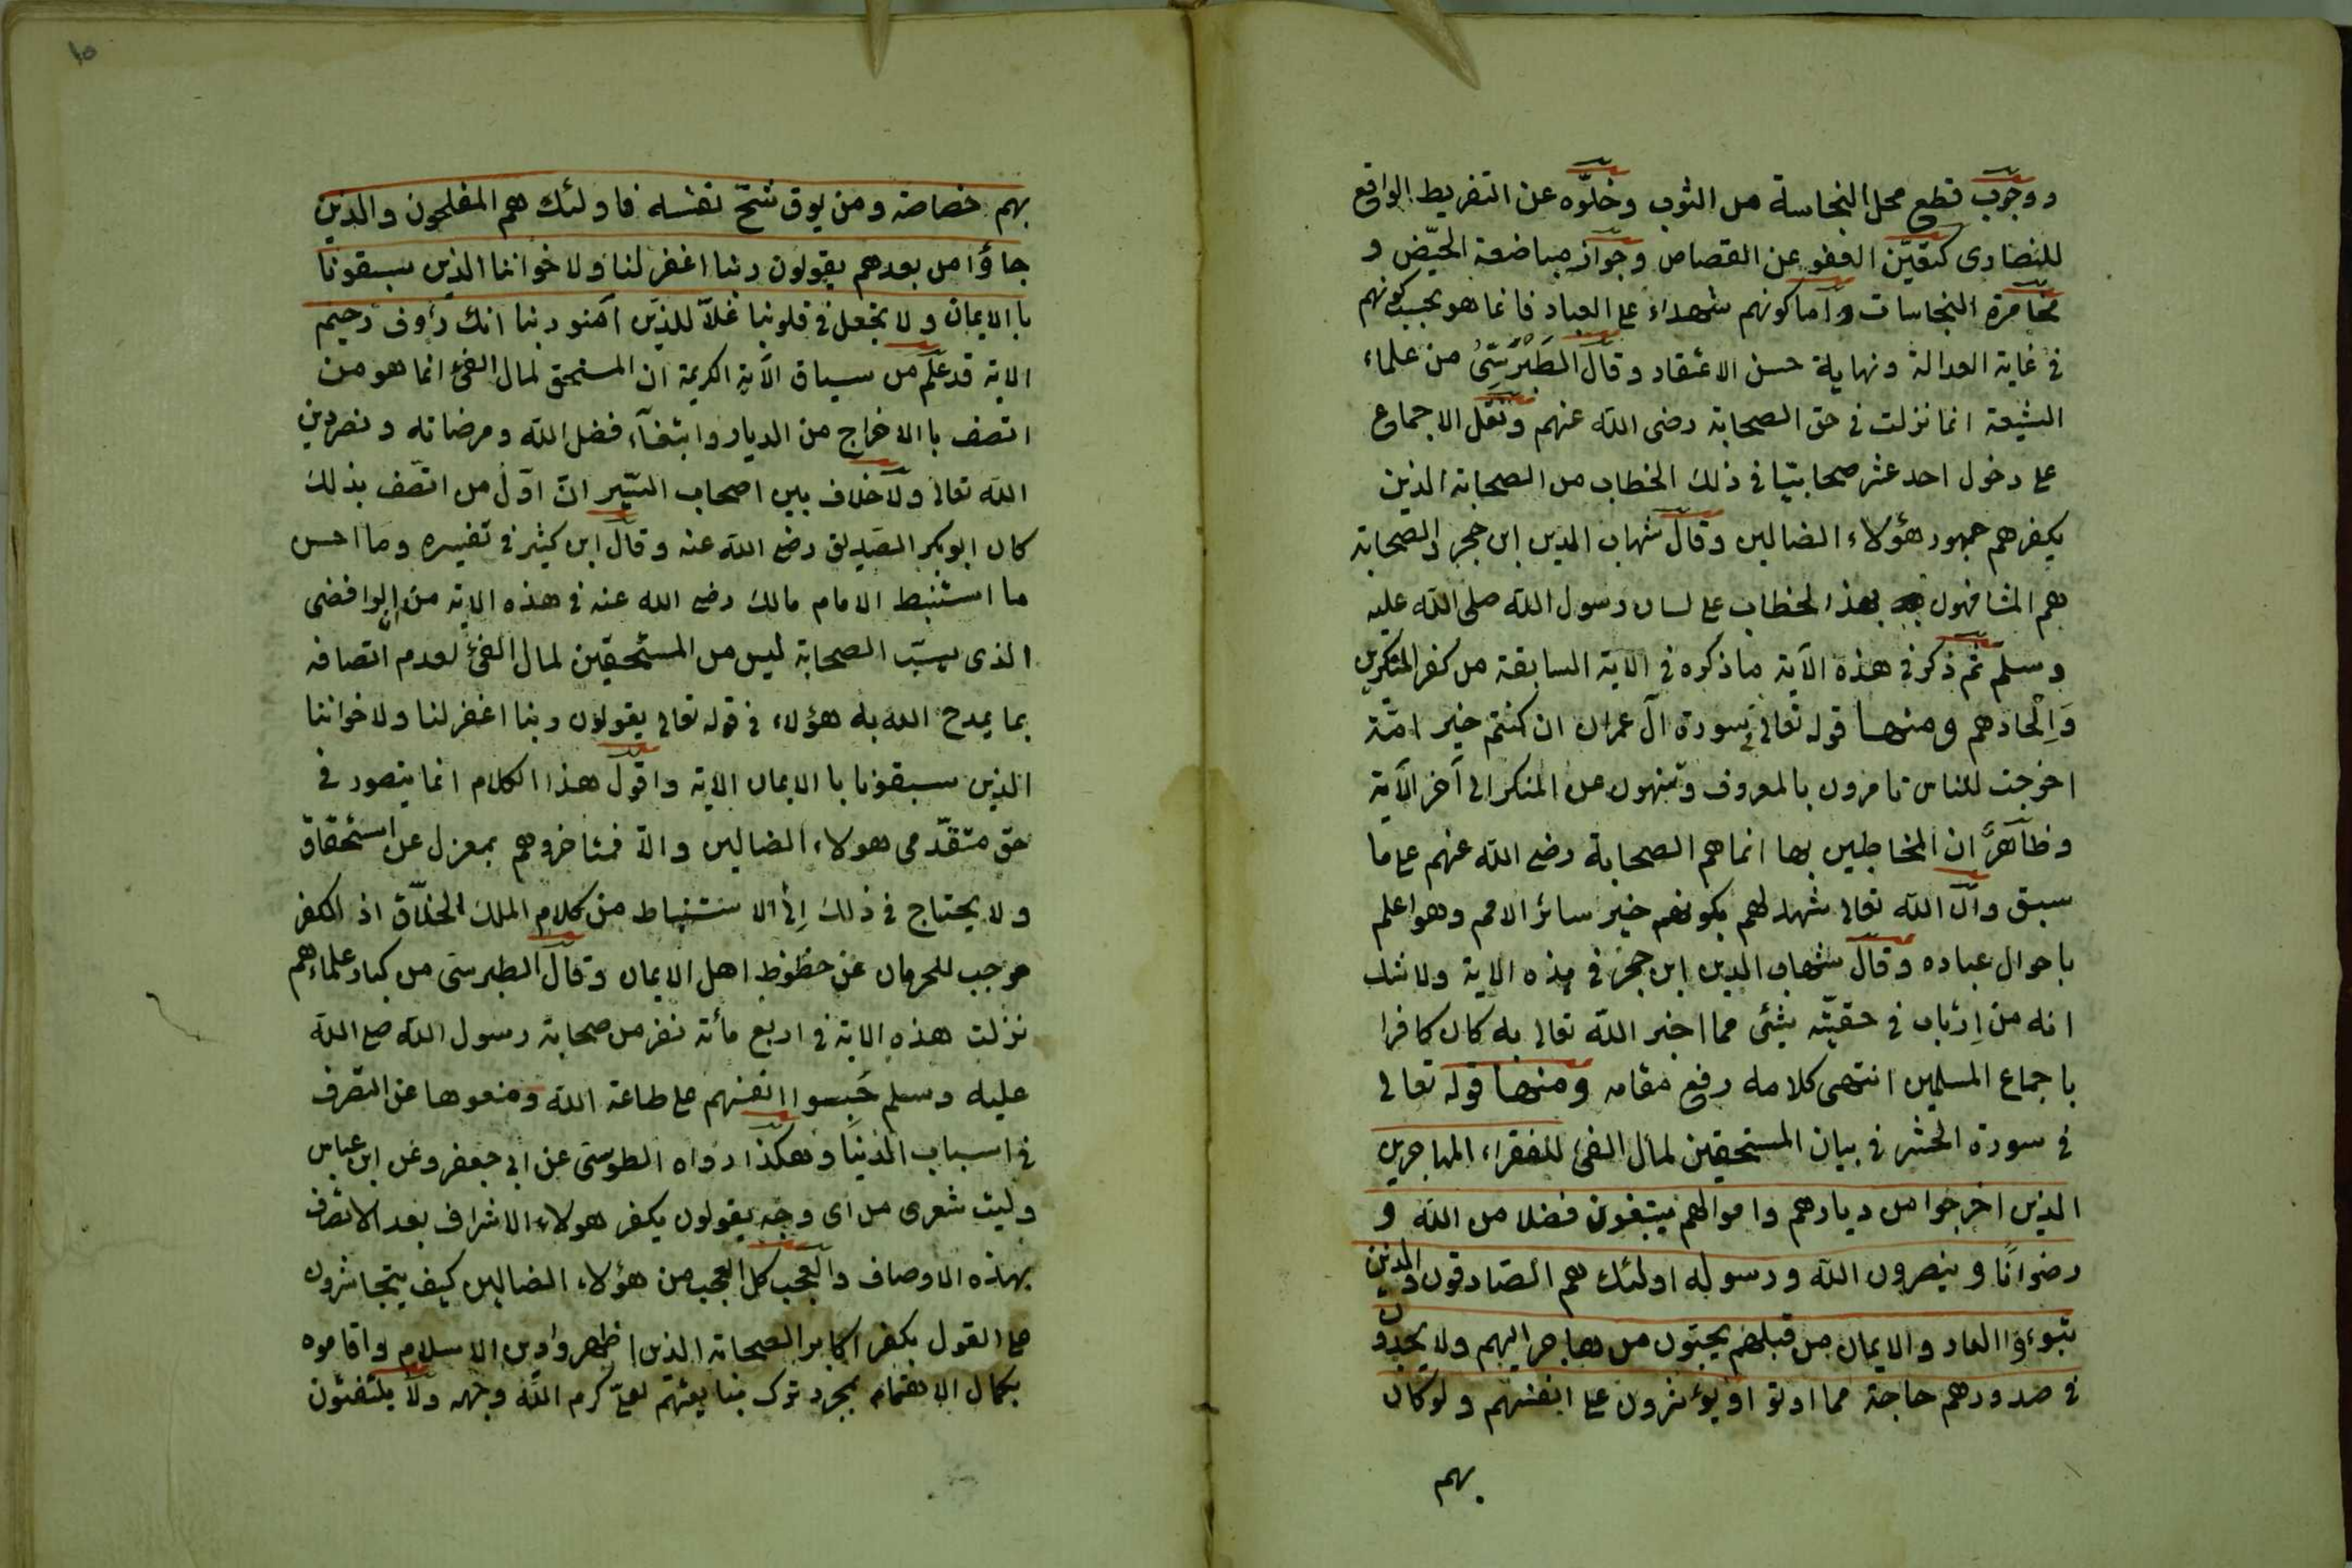 ووجوب قطع محل النجاسة من الثوب وخلوّه عن التفريط الواقع
للنصارى كتعيّن العفو عن القصاص وجواز مباضعة الحيّض و
مخامرة النجاسات واما كونهم شهداء على العباد فانما هو بحسب كونهم
فى غاية العدالة ونهاية حسن الاعتقاد وقال الطَبْرَسِىُّ من علماء
الشيعة انما نزلت فى حق الصحابة رضى الله عنهم ونقل الاجماع
على دخول احد عشر صحابيّا فى ذلك الخطاب من الصحابة الذين
يكفرهم جمهور هؤلاء الضالين وقال شهاب الدين ابن حجر والصحابة
هم المشافهون بهذا الخطاب على لسان رسول الله صلى الله عليه
وسلّم ثم ذكر فى هذه الآية ما ذكره فى الآية السابقة من كفر المنكرين
وَاِلْحادهم ومنها قوله تعالى فى سورة آل عمران ان كنتم خير امّة
اخرجت للناس تامرون بالمعروف وتنهون عن المنكر الى آخر الآية
وظاهرٌ ان المخاطبين بها انما هم الصحابة رضى الله عنهم على ما
سبق وان الله تعالى شهد لهم بكونهم خير سائر الامم وهو اعلم
باحوال عباده وقال شهاب الدين ابن حجر فى هذه الاية ولا شك
انه من اِرتاب فى حقيّته بشئى مما اخبر الله تعالى به كان كافرا
باجماع المسلمين انتهى كلامه رفع مقامه ومنها قوله تعالى
فى سورة الحشر فى بيان المستحقين لمال الفئ للفقراء المهاجرين
الذين اخرجوا من ديارهم واموالهم يبتغون فضلا من الله و
رضوانًا وينصرون الله ورسوله اولئك هم الصّادقون والذين
تبوءؤا الدار والايمان من قبلهم يحبّون من هاجر اليهم ولا يجدون
فى صدورهم حاجة مما اوتوا ويؤثرون على انفسهم ولو كان
بهم
١٥
بهم خصاصة ومن يوق شحّ نفسه فاولئك هم المفلحون والذين
جاؤا من بعدهم يقولون ربنا اغفر لنا ولاخواننا الذين سبقونا
با الايمان ولا تجعل فى قلوبنا غلّا للذين آمنو ربنا انك رؤف رحيم
الاية قد علم من سياق الآية الكريمة ان المستحق لمال الفئ انما هو من
اتصف با الاخراج من الديار وابتغآء فضل الله ومرضاته ونصر دين
الله تعالى ولا خلاف بين اصحاب السّير انّ اوّل من اتّصف بذلك
كان ابوبكر الصّديق رضى الله عنه وقال ابن كثير فى تفسيره وما احسن
ما استنبط الامام مالك رضى الله عنه فى هذه الاية من ان الرافضى
الذى يسبّ الصحابة ليس من المستحقين لمال الفئ لعدم اتصافه
بما يمدح الله به هؤلاء فى قوله تعالى يقولون ربنا اغفر لنا ولاخواننا
الذين سبقونا با الايمان الاية واقول هذا الكلام انما يتصور فى
حق متقدّمى هولاء الضالين والّا فمتأخروهم بمعزل عن استحقاق
ولا يحتاج فى ذلك اِلى الاستنباط من كلام الملك الخلّاق اذ الكفر
موجب للحرمان عن حظوظ اهل الايمان وقال الطبرسى من كبار علمائهم
نزلت هذه الاية فى اربع مأئة نفر من صحابة رسول الله صلى الله
عليه وسلم حَبسوا انفسهم على طاعة الله ومنعوها عن التصرف
فى اسباب الدنيا وهكذا رواه الطوسى عن ابى جعفر وعن ابن عباس
وليت شعرى من اى وجه يقولون بكفر هولاء الاشراف بعد الاتصاف
بهذه الاوصاف والعجب كل العجب من هؤلاء الضالين كيف يتجاسرون
على القول بكفر اكابر الصحابة الذين اظهروا دين الاسلام واقاموه
بكمال الاهتمام بمجرد ترك مبايعتهم لعلىّ كرم الله وجهه ولا يلتفتون